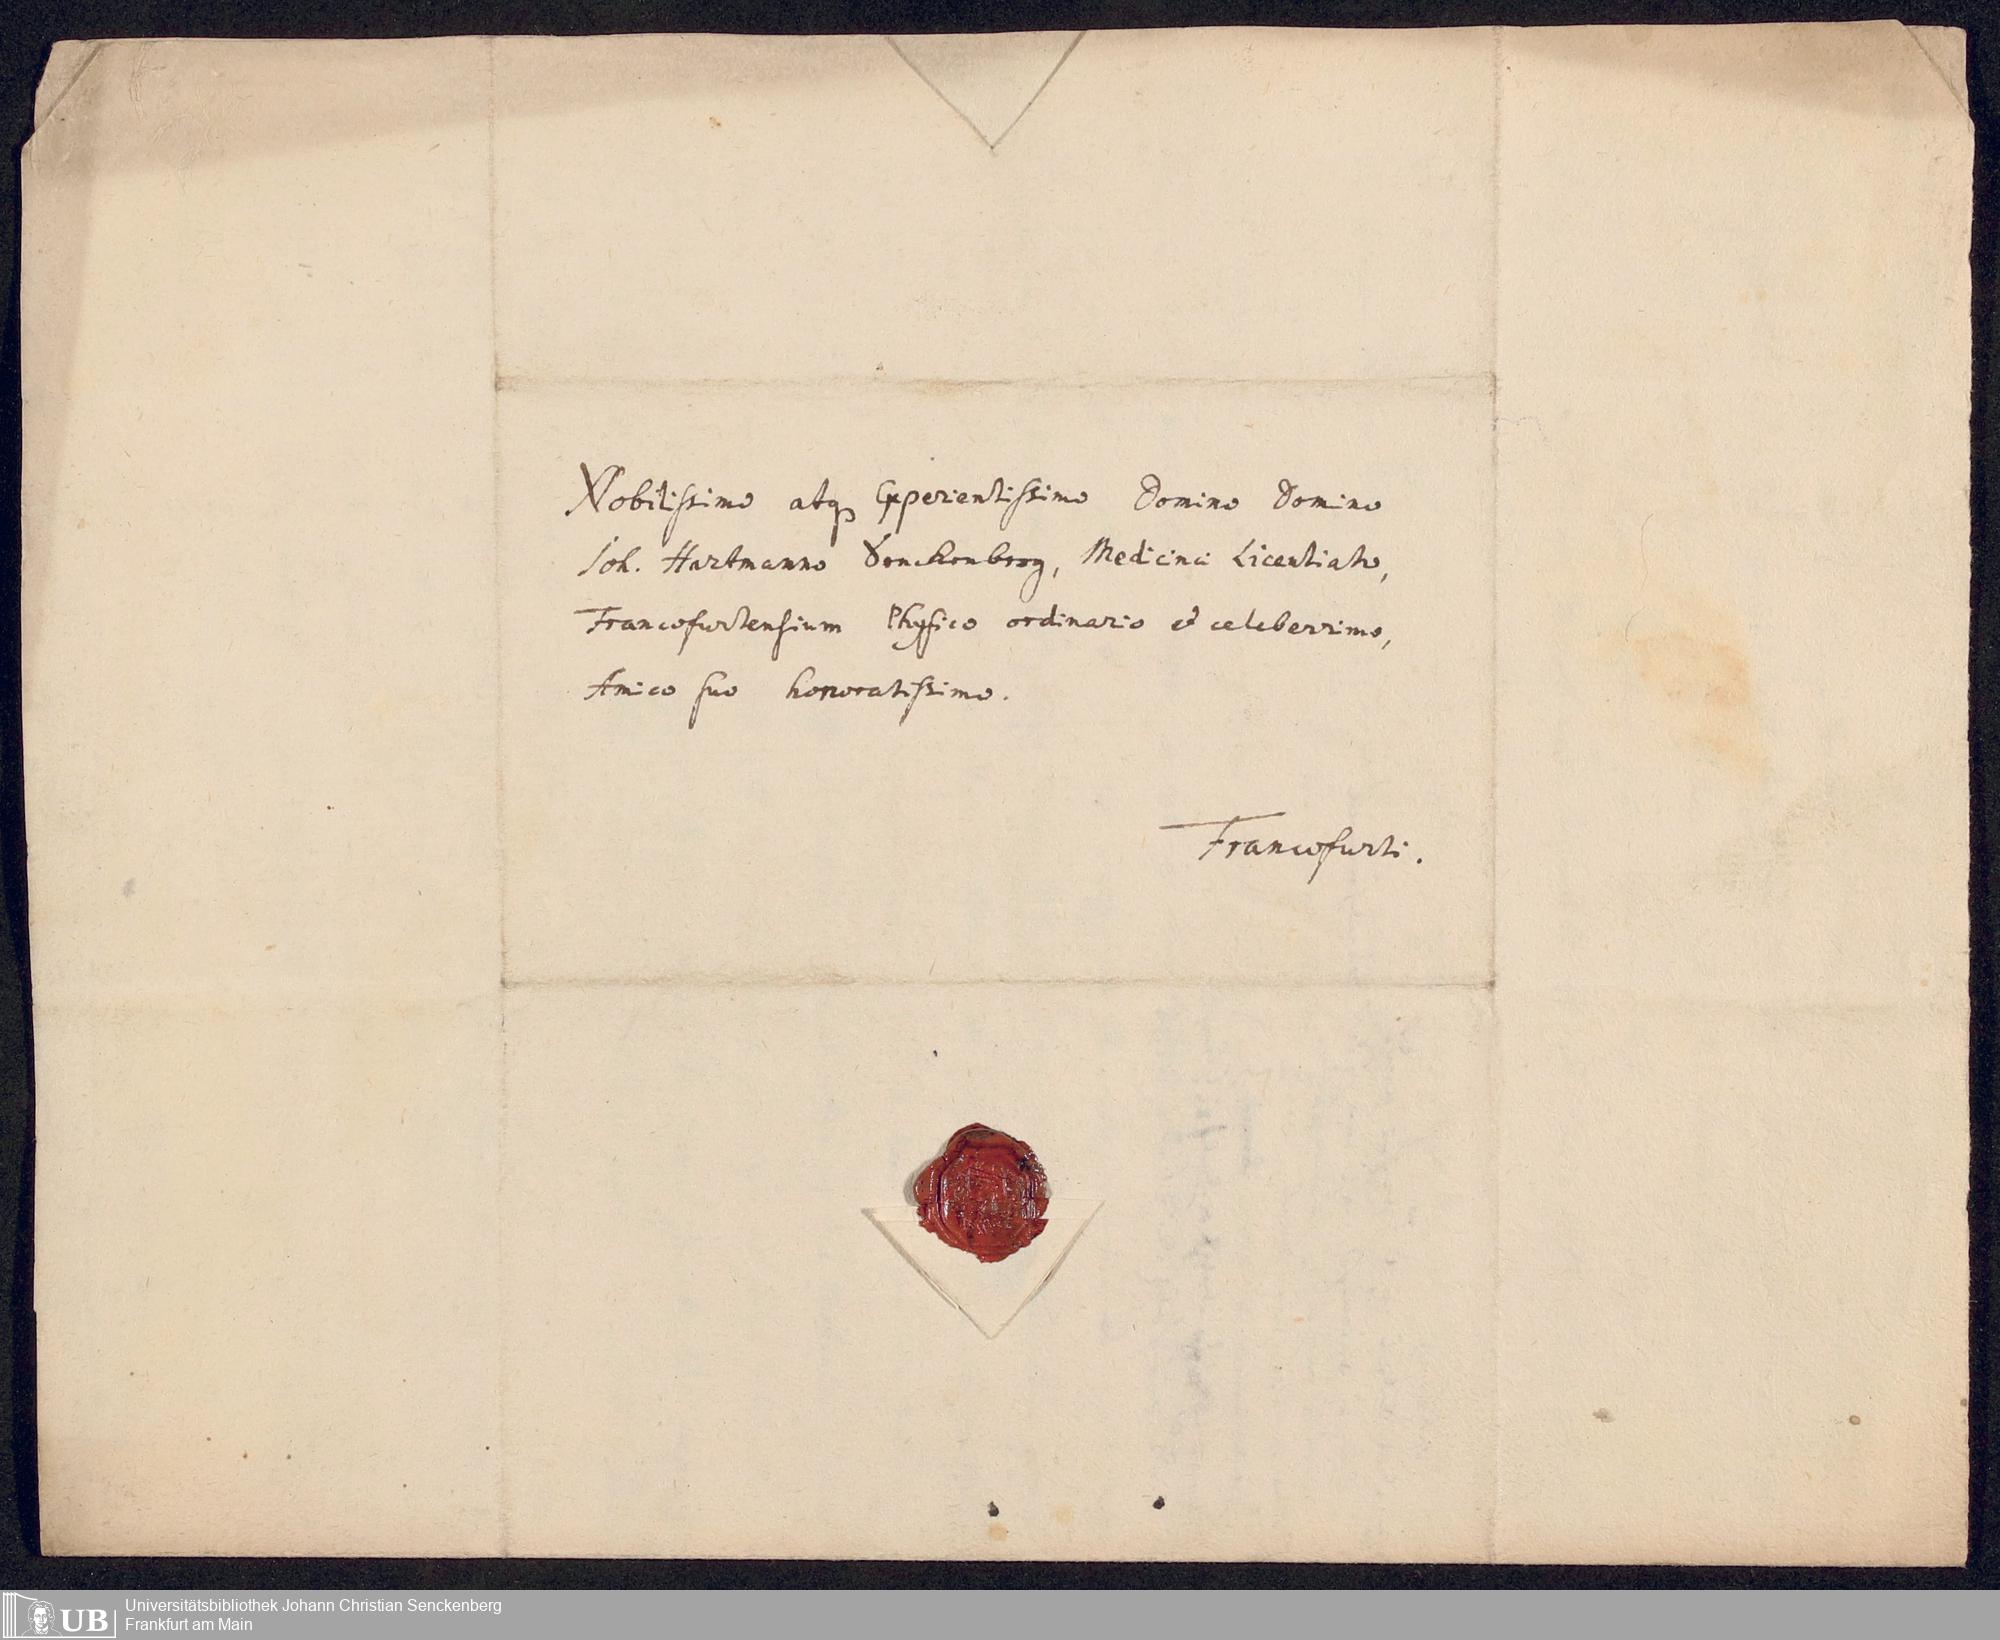 Nobilissimo atq Experientissimo Domino Domino
Joh. Hartmanno Senckenberg, Medicinæ Licentiato,
Francofurtensium Physico ordinario et celeberrimo,
Amico suo honoratissimo.
Francofurti.
UB
Universitätsbibliothek Johann Christian Senckenberg
Frankfurt am Main